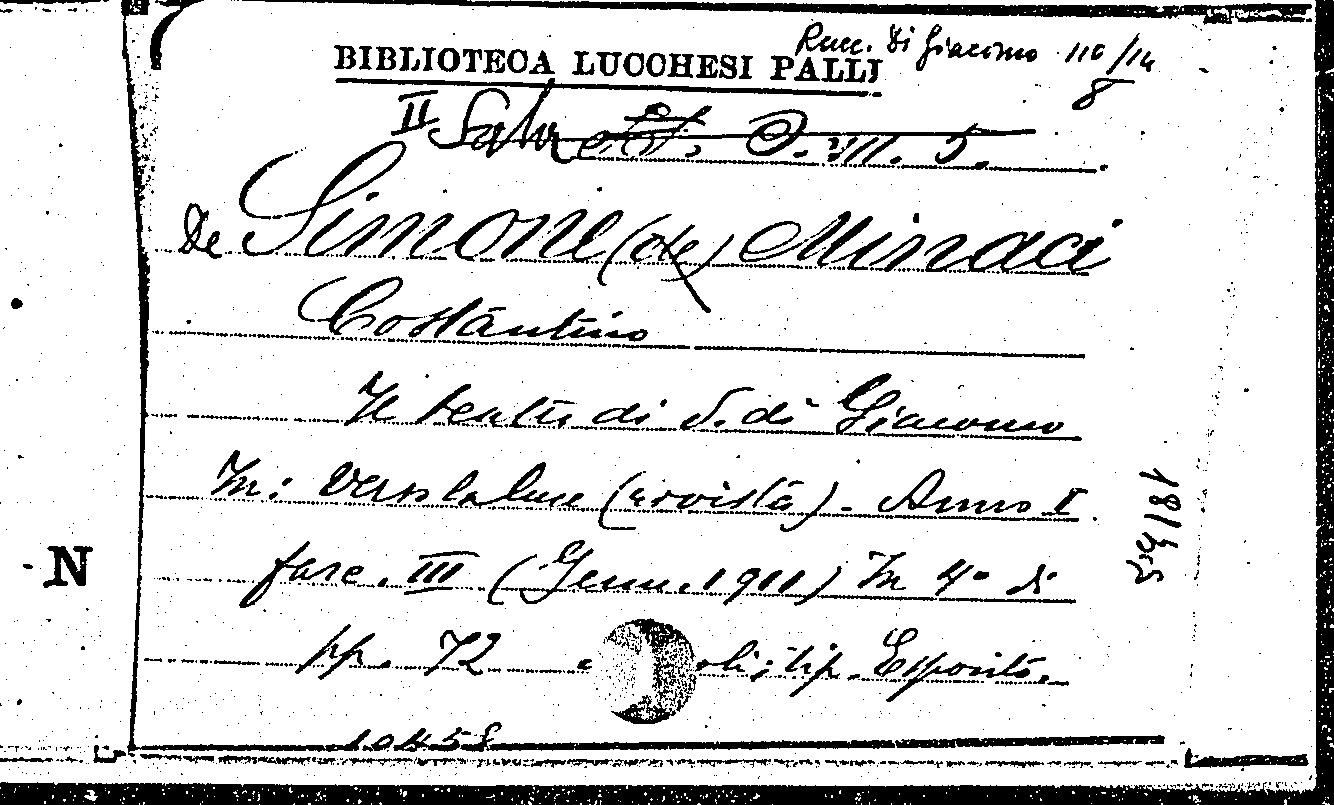 Racc. Di Giacomo 110/14
8
BIBLIOTECA LUCCHESI PALLI
II Sala
De Simone (de) Minaci
Costantino
Il teatro di S. di Giacomo
In: Verso la luce (rivista). Anno I
fasc. III (Genn. 1911) In 4° di
pp. 72 oli; tip. Esposito.
10458
N